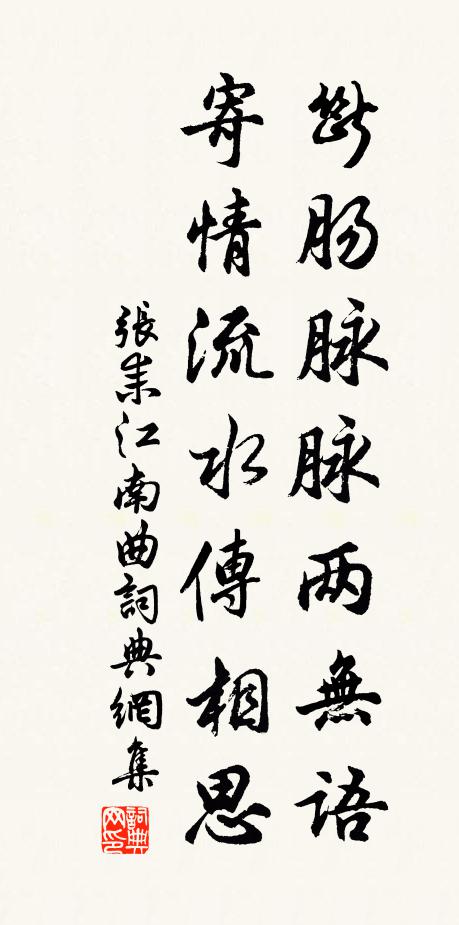 断肠脉脉两無語
寄情流水傳相思
張耒江南曲詞典網集
詞典网印